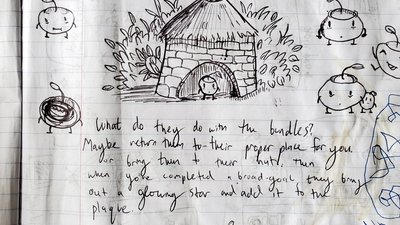 What do they do with the bundles?
Maybe return them to their proper place for you
or bring them to their huts. Then
when you've completed a broad-goal they bring
out a glowing star and add it to the
plaque.